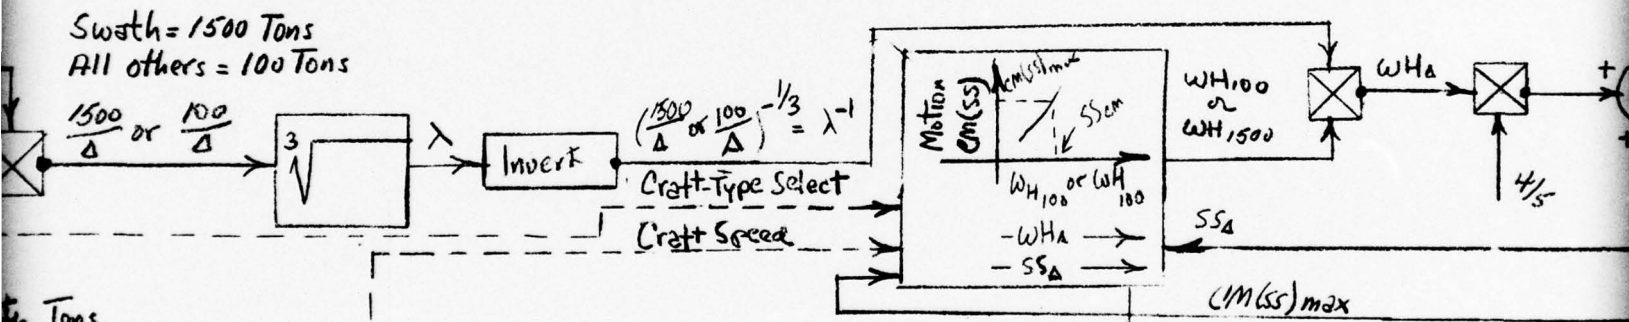 Swath = 1500 Tons
All others = 100 Tons
1500/Δ or 100/Δ
3√
λ
Invert
(1500/Δ or 100/Δ)^-1/3 = λ^-1
Craft-Type Select
Craft Speed
Motion
CM(SS)
CM(SS)max
SSCM
WH100 or WH100
WHΔ
SSΔ
WH100
or
WH1500
WHΔ
4/5
+
SSΔ
CM(SS)max
Tons